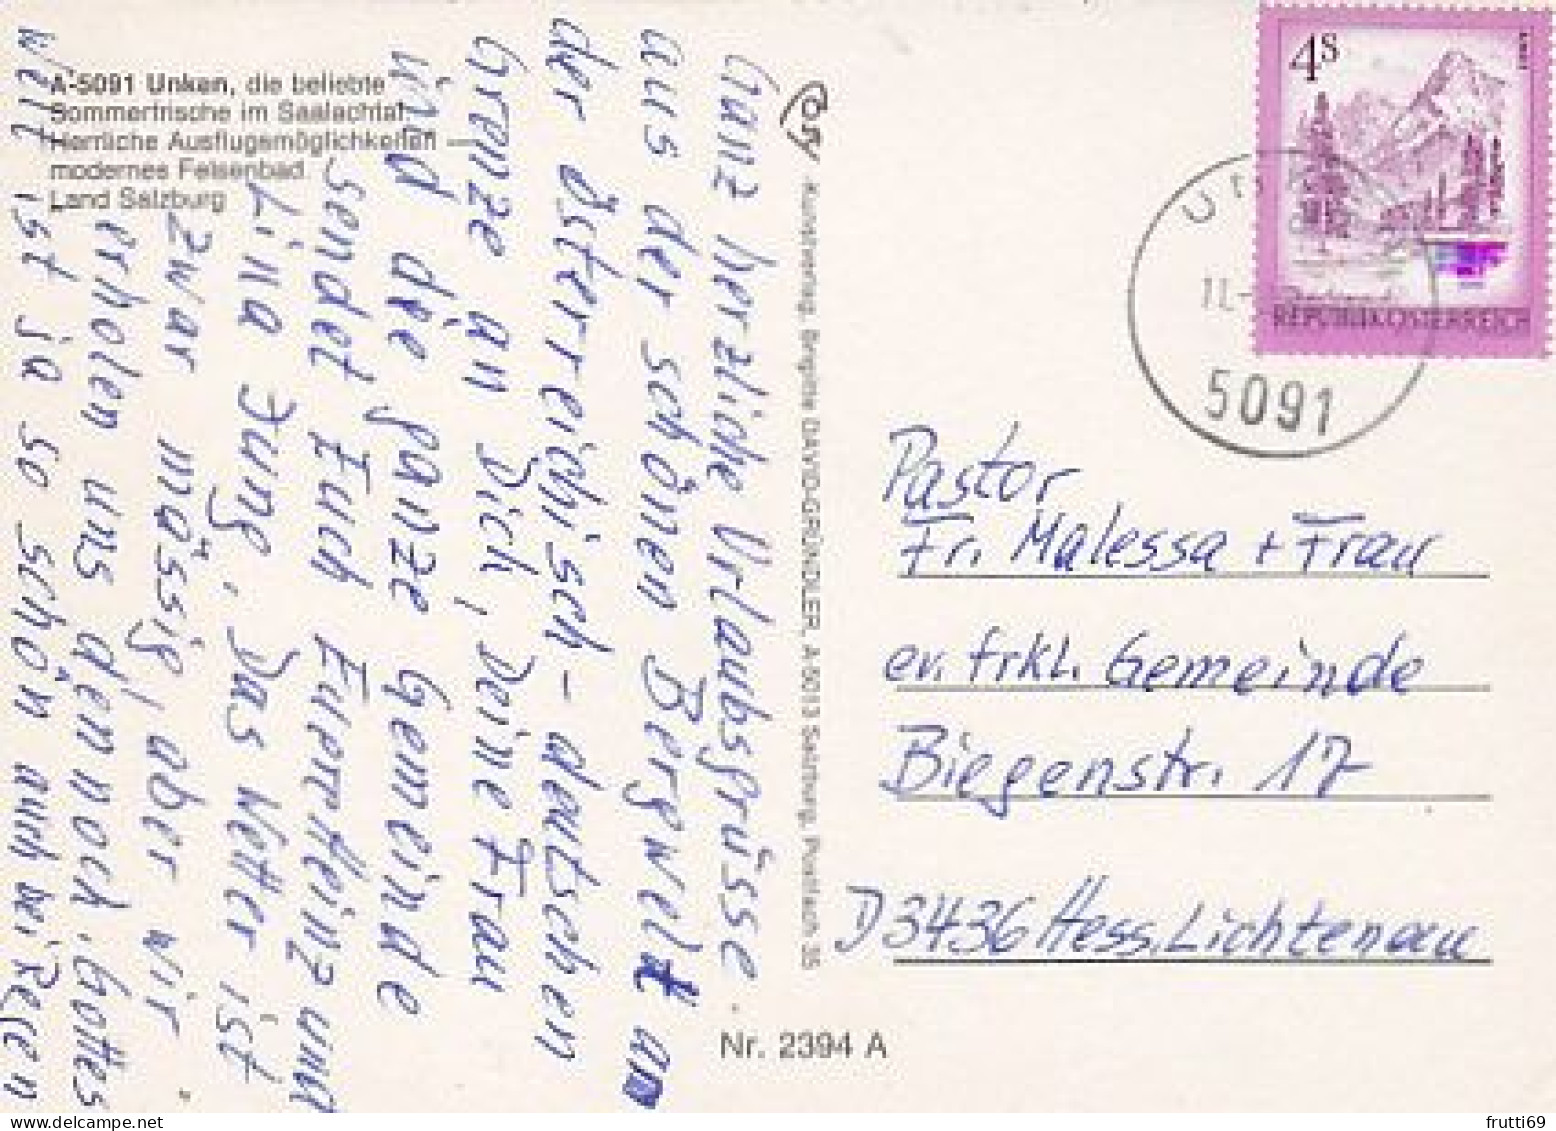 A-5091 Unken, die beliebte
Sommerfrische im Saalachtal.
Herrliche Ausflugsmöglichkeiten —
modernes Felsenbad.
Land Salzburg
Ganz herzliche Urlaubsgrüsse
aus der schönen Bergwelt am
der österreichisch-deutschen
Grenze an Dich, Deine Frau
und die ganze Gemeinde
sendet Euch Eure Heinz und
Lina Jung. Das Wetter ist
zwar mässig, aber wir
erholen uns dennoch. Gottes
Welt ist ja so schön auch bei Regen
Kunstverlag Brigitte DAVID-GRÜNDLER, A-5013 Salzburg, Postfach 35
Nr. 2394 A
4S
REPUBLIK ÖSTERREICH
11.-
5091
Pastor
Fr. Malessa + Frau
ev. frkl. Gemeinde
Biegenstr. 17
D 3436 Hess. Lichtenau
frutti69